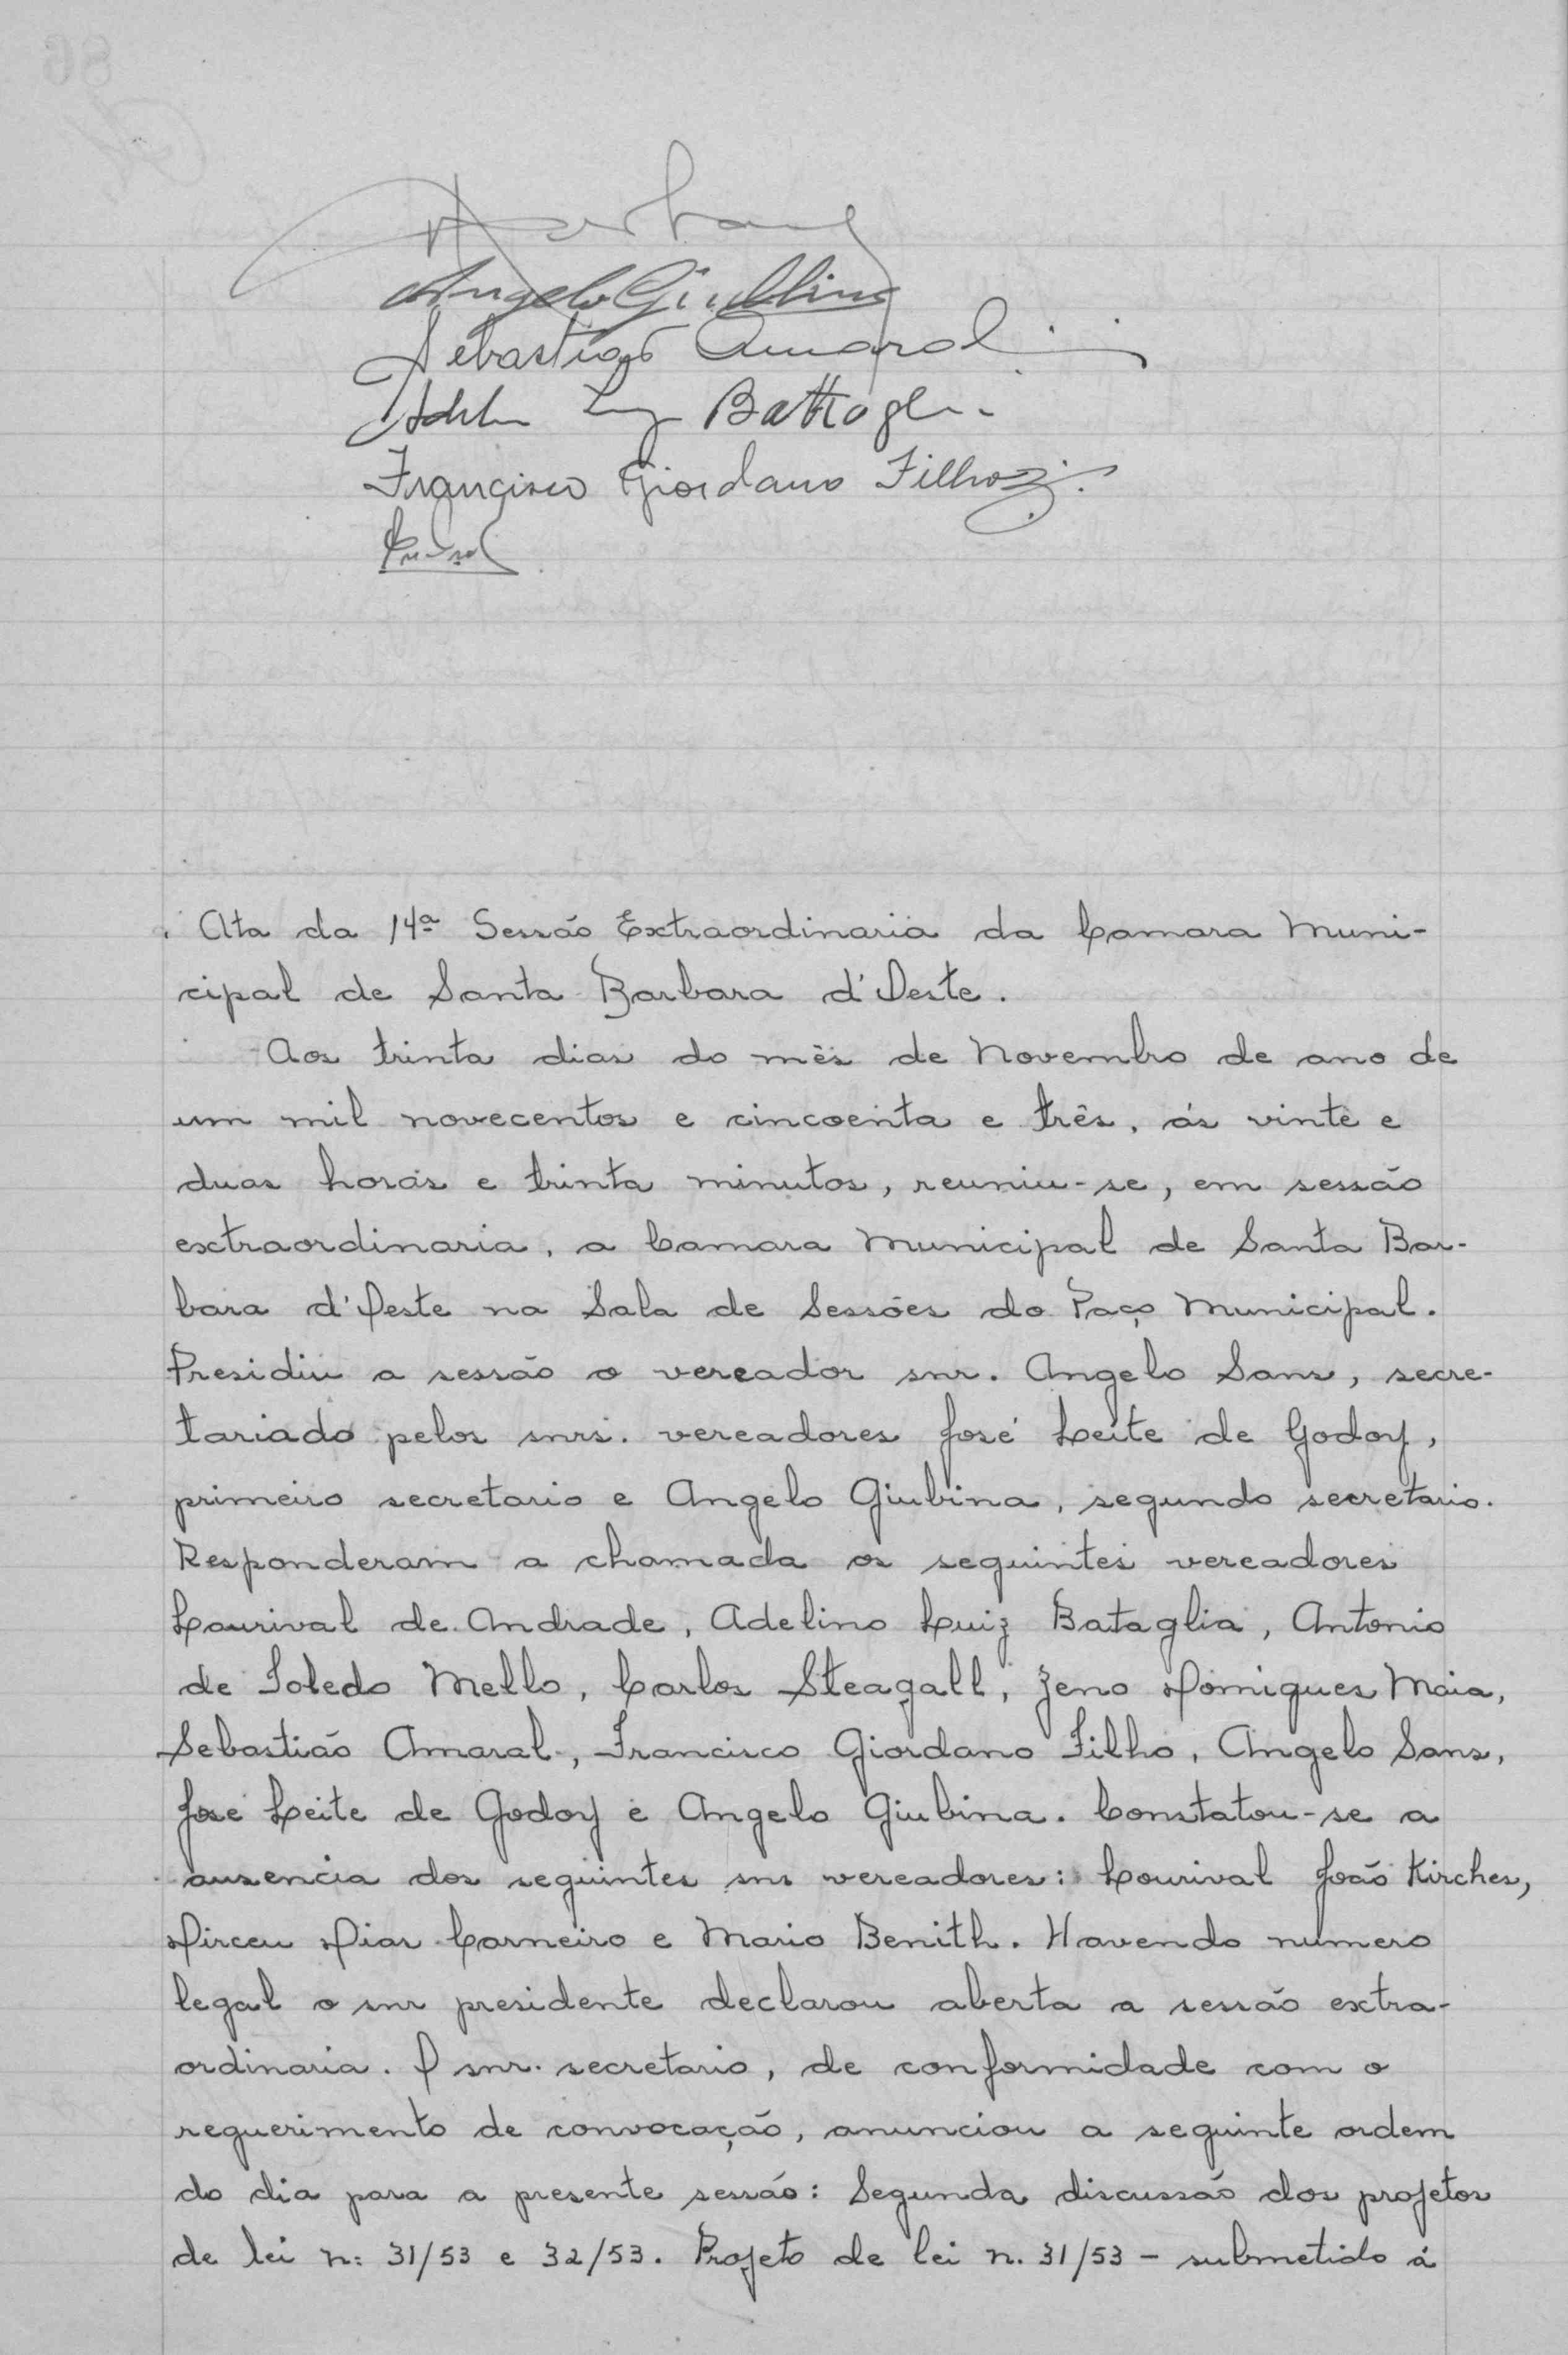 Angelo Giubbina
Sebastião Amaral
Battagli
Francisco Giordano Filho
Ata da 14ª Sessão Extraordinaria da Camara Muni-
cipal de Santa Barbara d'Oeste.
Aos trinta dias do mês de Novembro de ano de
um mil novecentos e cincoenta e três, ás vinte e
duas horas e trinta minutos, reuniu-se, em sessão
extraordinaria, a Camara Municipal de Santa Bar-
bara d'Oeste na Sala de Sessões do Paço Municipal.
Presidiu a sessão o vereador snr. Angelo Sans, secre-
tariado pelos snrs. vereadores José Leite de Godoy,
primeiro secretario e Angelo Giubina, segundo secretario.
Responderam a chamada os seguintes vereadores
Lourival de Andrade, Adelino Luiz Bataglia, Antonio
de Toledo Mello, Carlos Steagall, Zeno Domigues Maia,
Sebastião Amaral, Francisco Giordano Filho, Angelo Sans,
José Leite de Godoy e Angelo Giubina. Constatou-se a
ausencia dos seguintes snrs vereadores: Lourival João Kirches,
Dirceu Dias Carneiro e Mario Benith. Havendo numero
legal o snr presidente declarou aberta a sessão extra-
ordinaria. O snr. secretario, de conformidade com o
requerimento de convocação, anunciou a seguinte ordem
do dia para a presente sessão: Segunda discussão dos projetos
de lei n: 31/53 e 32/53. Projeto de lei n. 31/53 - submetido á